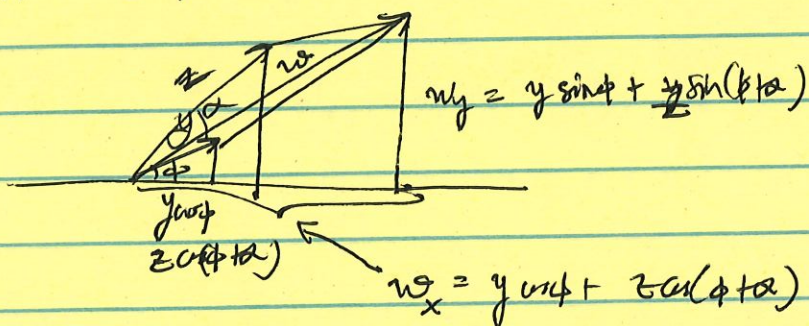 z
w
θ
α
ϕ
w_y = y sinϕ + z sin(ϕ+α)
y cosϕ
z cos(ϕ+α)
w_x = y cosϕ + z cos(ϕ+α)